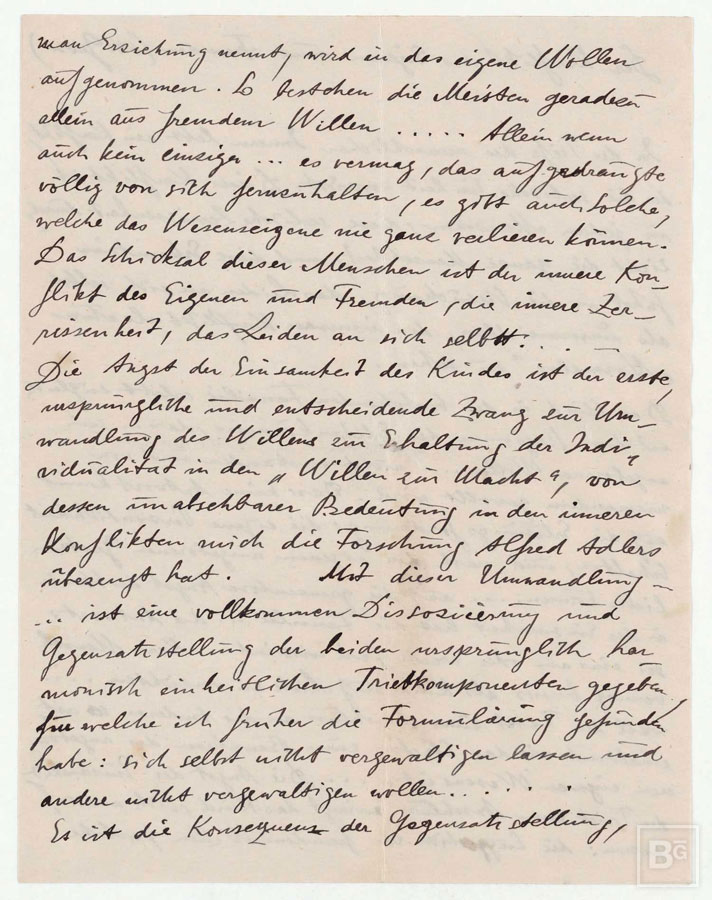 man Erziehung nennt, wird in das eigene Wollen
aufgenommen. So bestehen die Meisten geradezu
allein aus fremdem Willen ..... Allein wenn
auch kein einziger ... es vermag, das aufgedrängte
völlig von sich fernzuhalten, es gibt auch Solche,
welche das Wesenseigene nie ganz verlieren können.
Das Schicksal dieser Menschen ist der innere Kon-
flikt des Eigenen und Fremden, die innere Zer-
rissenheit, das Leiden an sich selbst...
Die Angst der Einsamkeit des Kindes ist der erste,
ursprüngliche und entscheidende Zwang zur Um-
wandlung des Willens zur Erhaltung der Indi-
vidualität in den „Willen zur Macht“, von
dessen unabsehbarer Bedeutung in den inneren
Konflikten mich die Forschung Alfred Adlers
überzeugt hat. Mit dieser Umwandlung –
... ist eine vollkommen Dissoziierung und
Gegensatzstellung der beiden ursprünglich har
monisch einheitlichen Triebkomponenten gegeben,
für welche ich früher die Formulierung gefunden
habe: sich selbst nicht vergewaltigen lassen und
andere nicht vergewaltigen wollen......
Es ist die Konsequenz der Gegensatzstellung,
BG